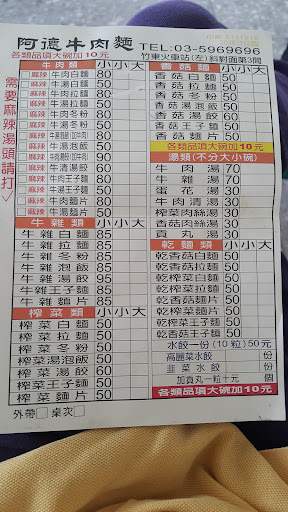 阿德牛肉麵 TEL:03-5969696
各類品項大碗加10元 竹東火車站(左)斜對面第3間
需要麻辣湯頭請打✓
牛肉類 小 小 大
麻辣 牛肉白麵 80
麻辣 牛肉拉麵 80
麻辣 牛肉冬粉 80
麻辣 牛湯白麵 50
麻辣 牛湯拉麵 50
麻辣 牛湯冬粉 50
麻辣 50
麻辣 90
牛清湯餃 60
麻辣 牛肉王子麵 80
麻辣 牛湯王子麵 50
麻辣 牛肉麵片 80
麻辣 牛湯麵片 50
牛雜類 小 小 大
牛雜白麵 85
牛雜拉麵 85
牛雜冬粉 85
牛雜泡飯 85
牛雜湯餃 95
牛雜王子麵 85
牛雜麵片 85
榨菜類 小 小 大
榨菜白麵 50
榨菜拉麵 50
榨菜冬粉 50
榨菜湯泡飯 50
榨菜湯餃 60
榨菜王子麵 50
榨菜麵片 50
外帶□ 桌次□
香菇類 小 小 大
香菇白麵 50
香菇拉麵 50
香菇冬粉 50
香菇湯泡飯 50
香菇湯餃 60
香菇王子麵 50
香菇麵片 50
各類品項大碗加10元
湯類(不分大小碗)
牛肉湯 70
牛雜湯 70
蛋花湯 30
牛肉清湯 30
榨菜肉絲湯 30
貢丸湯 30
乾麵類 小 小 大
乾香菇白麵 50
乾香菇拉麵 50
乾榨菜白麵 50
乾榨菜拉麵 50
乾香菇王子麵 50
乾香菇麵片 50
乾榨菜王子麵 50
乾榨菜麵片 50
水餃一份(10粒)50元
高麗菜水餃 份
韭菜水餃 份
加貢丸一粒十元 個
各類品項大碗加10元